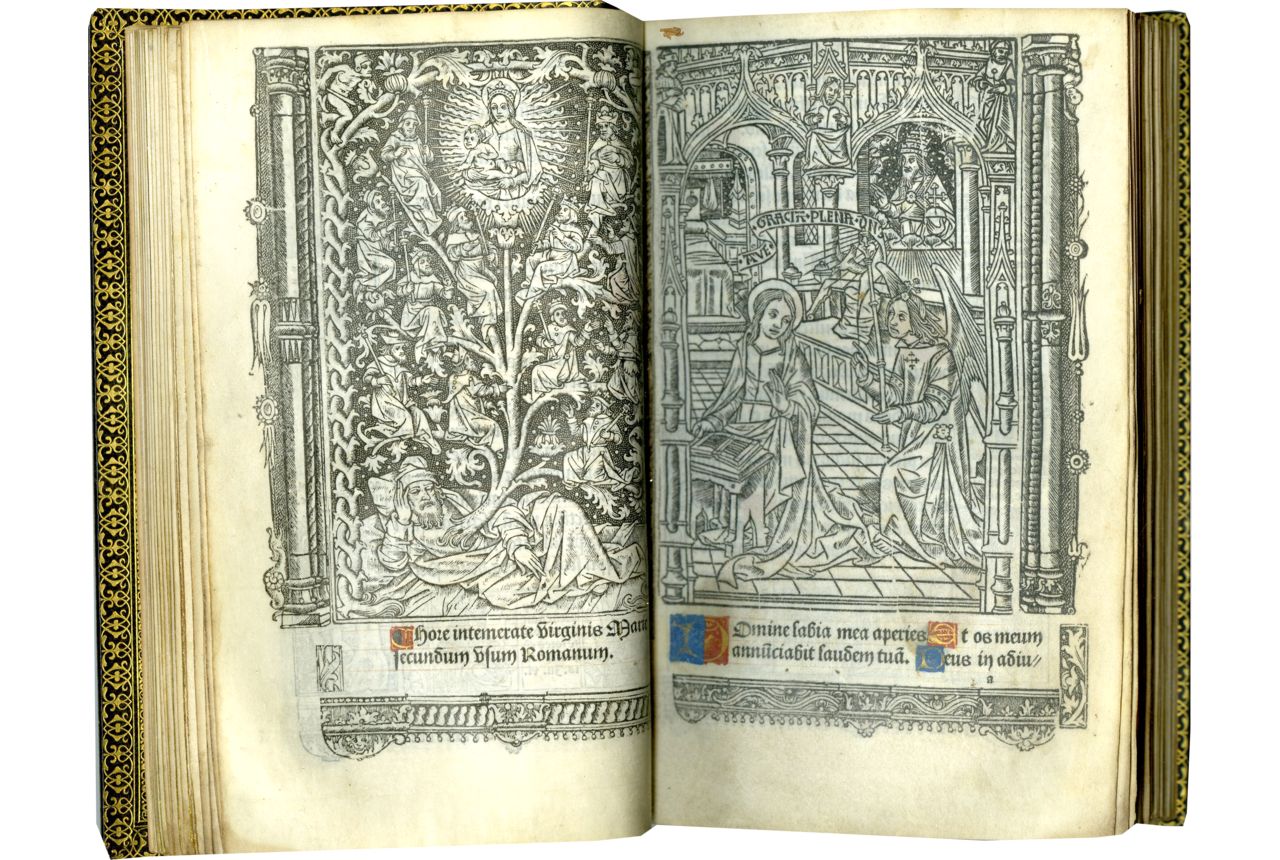 hore intemerate Virginis Marie
secundum vsum Romanum.
AVE · GRACIA · PLENA · DN
Domine labia mea aperies Et os meum
annūciabit laudem tuā. Deus in adiu/
a